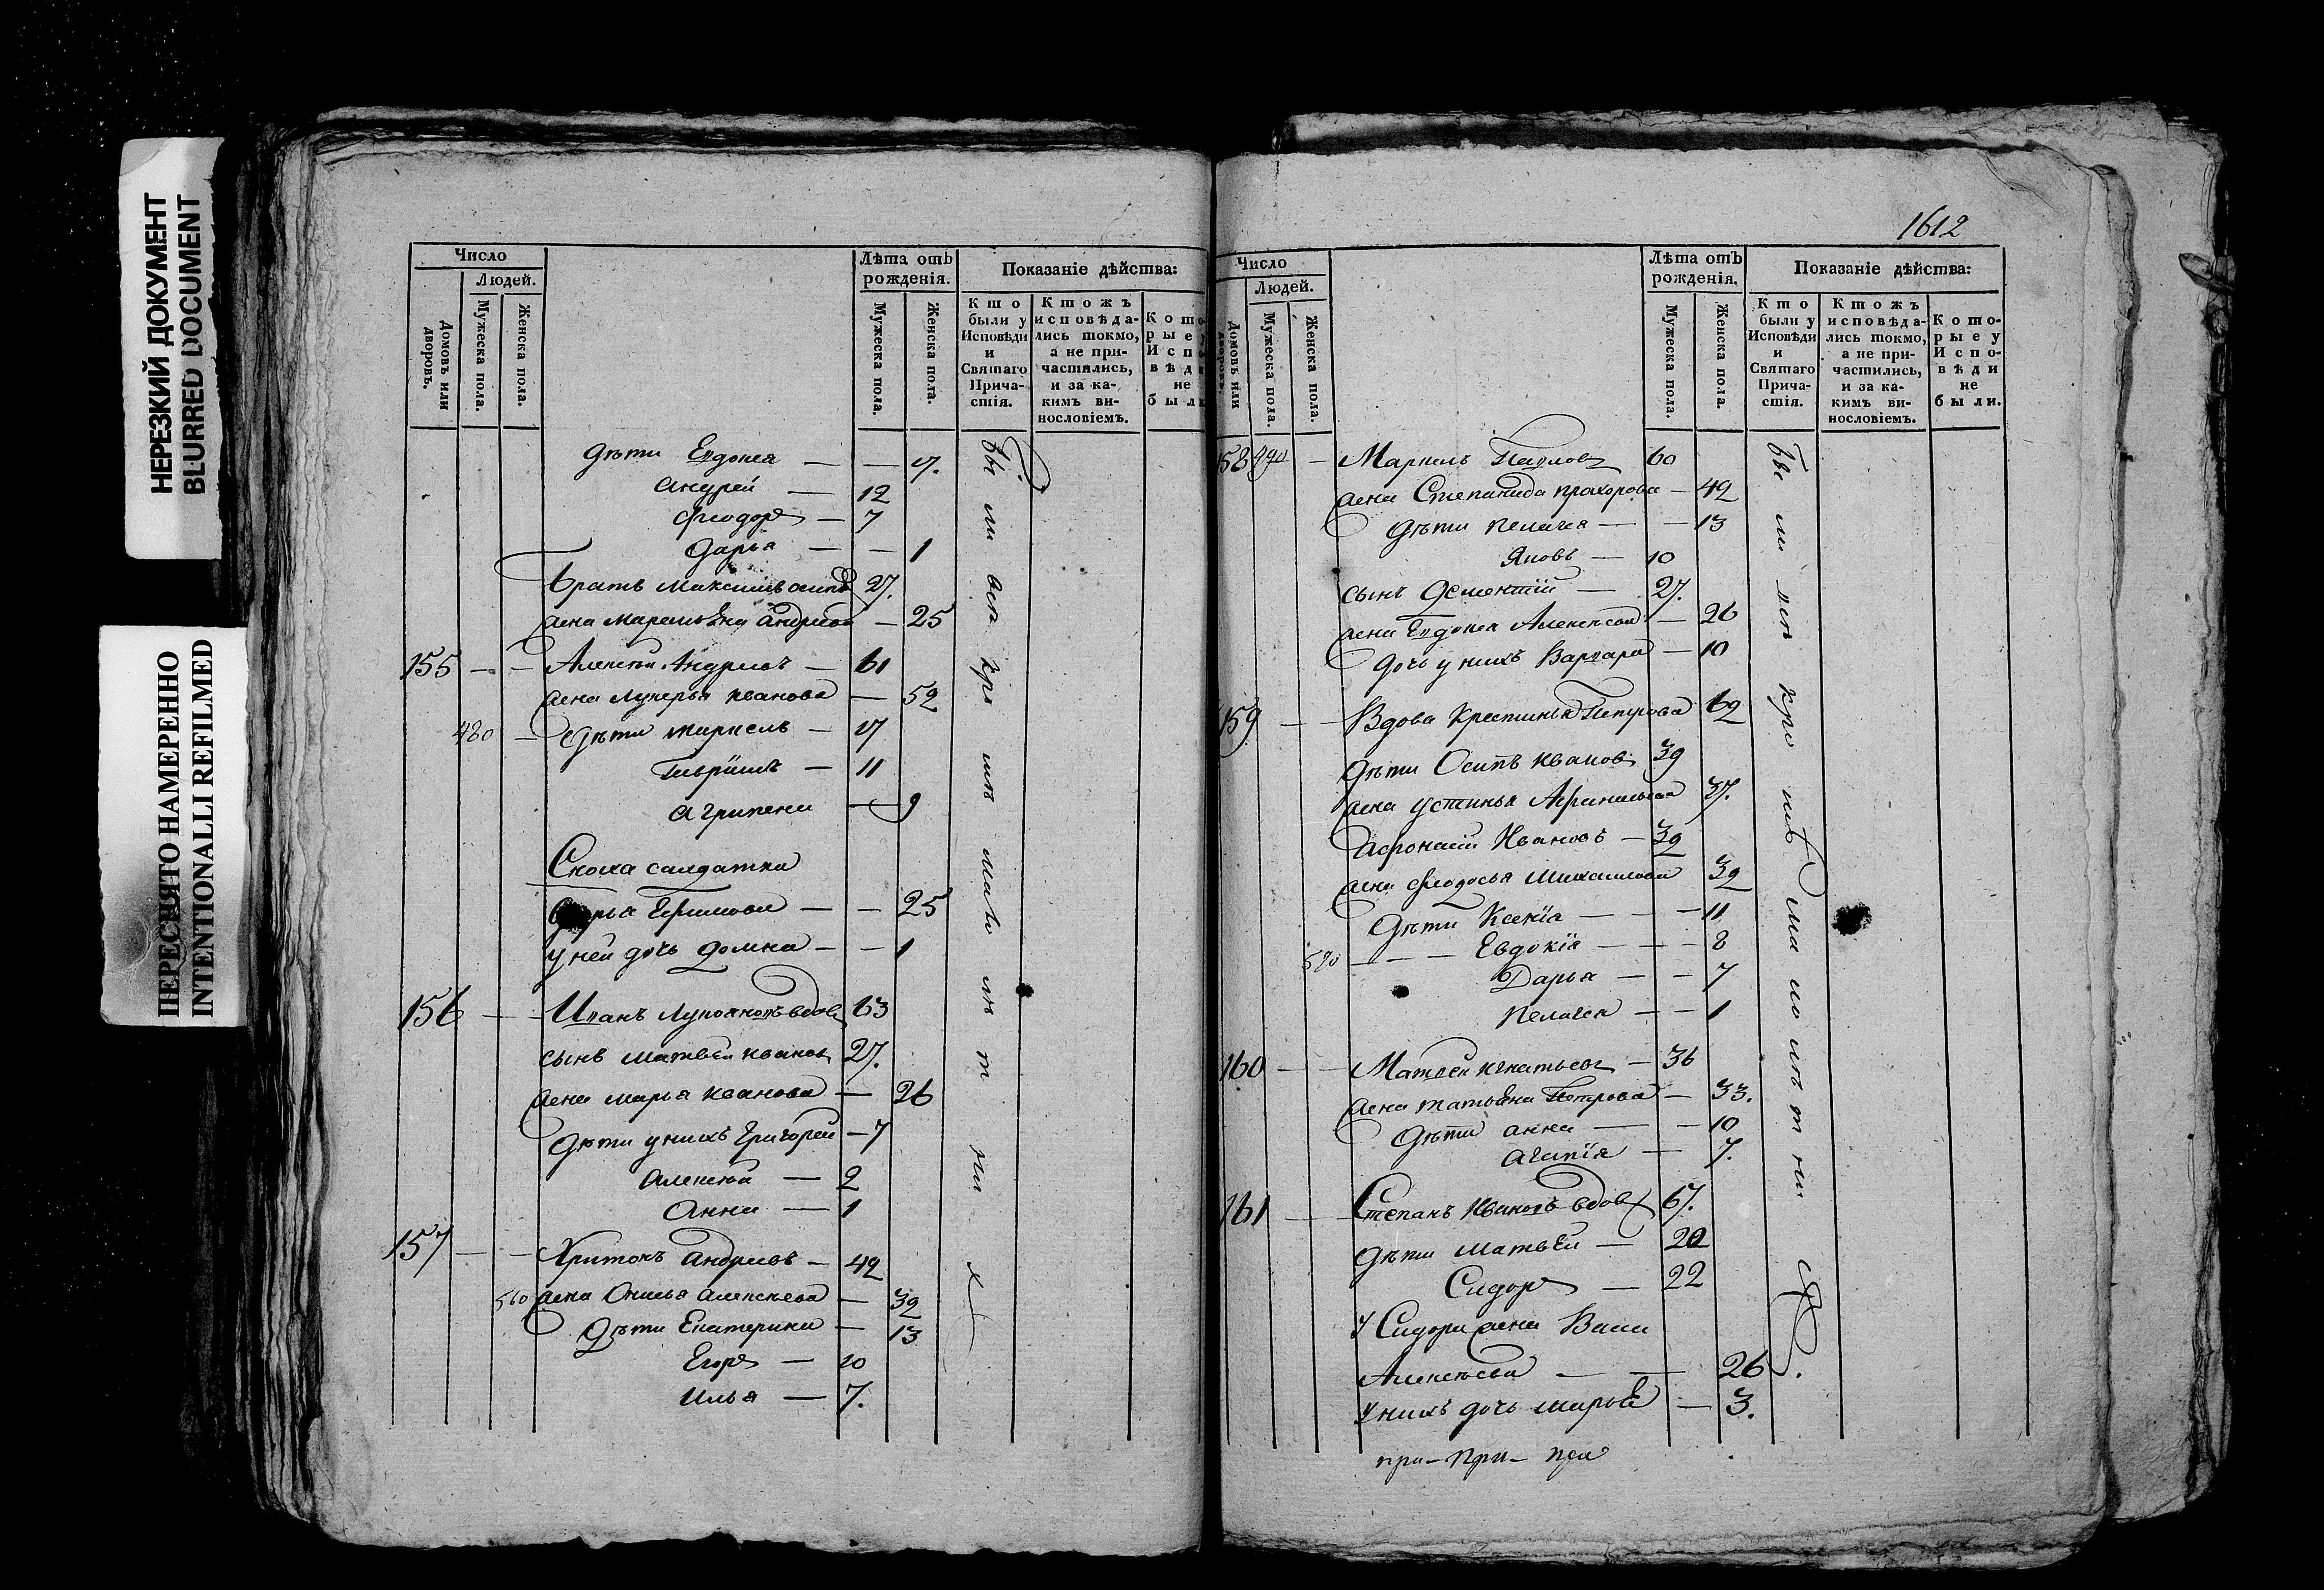 НЕРЕЗКИЙ ДОКУМЕНТ
BLURRED DOCUMENT
ПЕРЕСНЯТО НАМЕРЕННО
INTENTIONALLI REFILMED
Число
Людей.
Домовъ или дворовъ.
Мужеска пола.
Женска пола.
Лѣта отъ рожденія.
Мужеска пола.
Женска пола.
Показаніе дѣйства:
Кто были у Исповѣди и Святаго Прича-стія.
Ктожъ исповѣда-лись токмо, а не при-частились, и за ка-кимъ ви-нословіемъ.
дѣти Евдокея — —
Андрей — 12
Феодоръ — 7
Дарья — — 1
братъ Максимъ Осип 27.
жена Маремьяна Андреева — 25
155 — — Алексѣй Андреевъ — 61
жена Лукерья Иванова — 59
480 — дѣти Маркелъ —
Гаврiилъ — 11
Агрипена — 9
Сноха салдатка
Ефимова — — 25
у ней дочь Домна — — 1
156 — — Иванъ Лукояновъ вдовъ 63
сынъ Матвѣй Ивановъ 27.
жена Марья Иванова — 26
дѣти у нихъ Григорей — 7
Алексѣй — 2
Анна — 1
157 — — Харитонъ Андреевъ — 42
560 жена Алексѣева — 39
дѣти Екатерина — 13
Егоръ — 10
Илья — 7.
были вси кромѣ малолѣтних
1612
Число
Людей.
Домовъ или дворовъ.
Мужеска пола.
Женска пола.
Лѣта отъ рожденія.
Мужеска пола.
Женска пола.
Показаніе дѣйства:
Кто были у Исповѣди и Святаго Прича-стія.
Ктожъ исповѣда-лись токмо, а не при-частились, и за ка-кимъ ви-нословіемъ.
Кото-рые у Испо-вѣди не были.
158 490 — Маркелъ Павловъ 60
жена Степанида Прохорова — 49
дѣти Пелагея — — 13
Яковъ — 10
сынъ Дементiй — 27.
жена Евдокея Алексѣева — 26
дочь у нихъ Варвара — 10
159 — — Вдова Крестинья Петрова 69
дѣти Осипъ Ивановъ 39
жена Устинья 37.
Афонасiй Ивановъ — 39
жена Феодосья Михаилова 39
дѣти Ксенiа — — — 11
580 — — — Евдокiа — — — 8
Дарья — — 7
Пелагея — — 1
160 — — Матвей Игнатьевъ — 36
жена Татьяна Петрова — 33.
дѣти Анна — — 10
Агапiя — 7.
161 — — Степанъ Ивановъ вдовъ 67.
дѣти Матвѣй — 20
Сидоръ — 22
у Сидора жена Васса
Алексѣева — — 26
у нихъ дочь — 3.
были вси кромѣ малолѣтних
при — при —